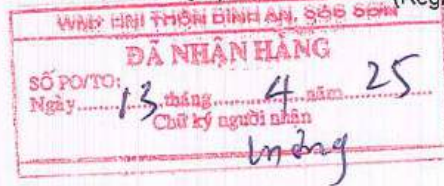 (Reg
WMP HNI THÔN BÌNH AN, SÓC SƠN
ĐÃ NHẬN HÀNG
SỐ PO/TO:
Ngày.......13..tháng.......4....năm 25
Chữ ký người nhận